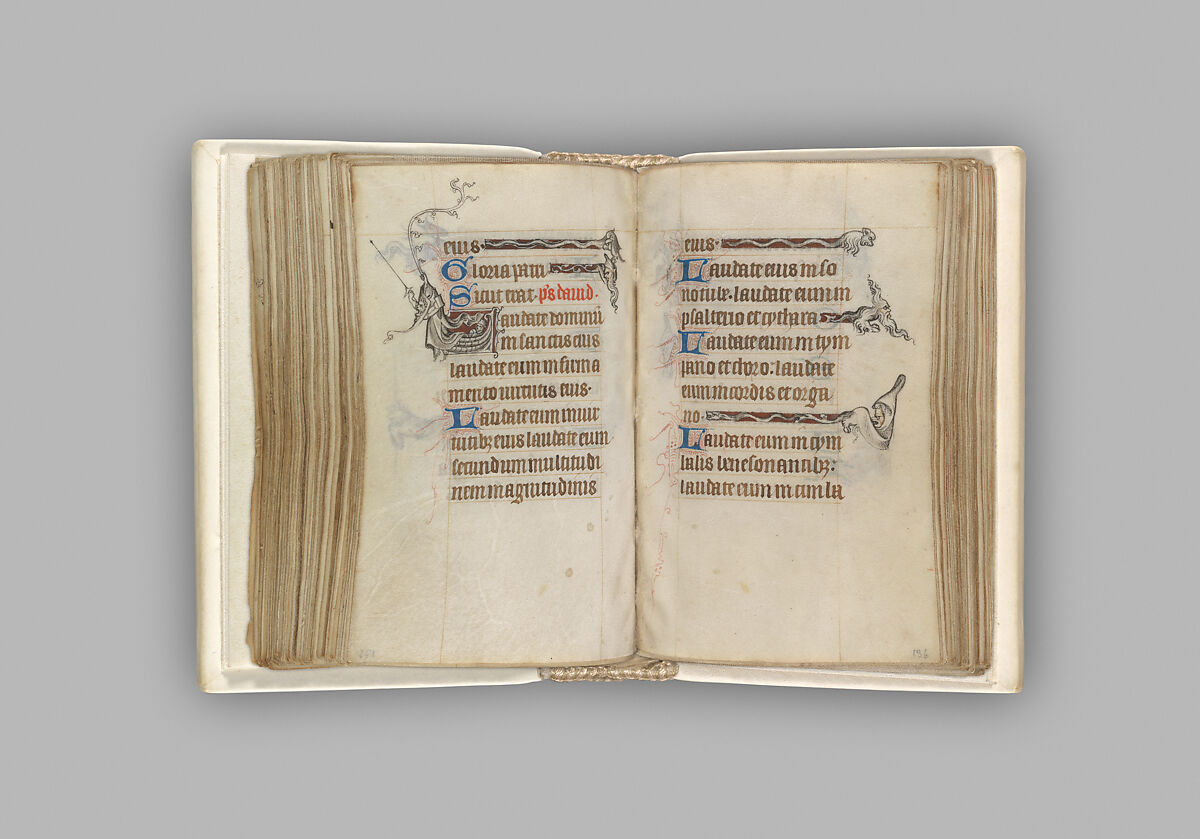 eius.
Gloria patri
Sicut erat. ps david.
Laudate dominū
in sanctis eius
laudate eum in firma
mento uirtutis eius.
Laudate eum in uir
tutibꝫ eius laudate eum
secundum multitudi
nem magnitudinis
eius.
Laudate eum in so
no tube. laudate eum in
psalterio et cythara
Laudate eum in tym
pano et choro: laudate
eum in cordis et orga
no.
Laudate eum in cym
balis bene sonantibꝫ:
laudate eum in cimba
196